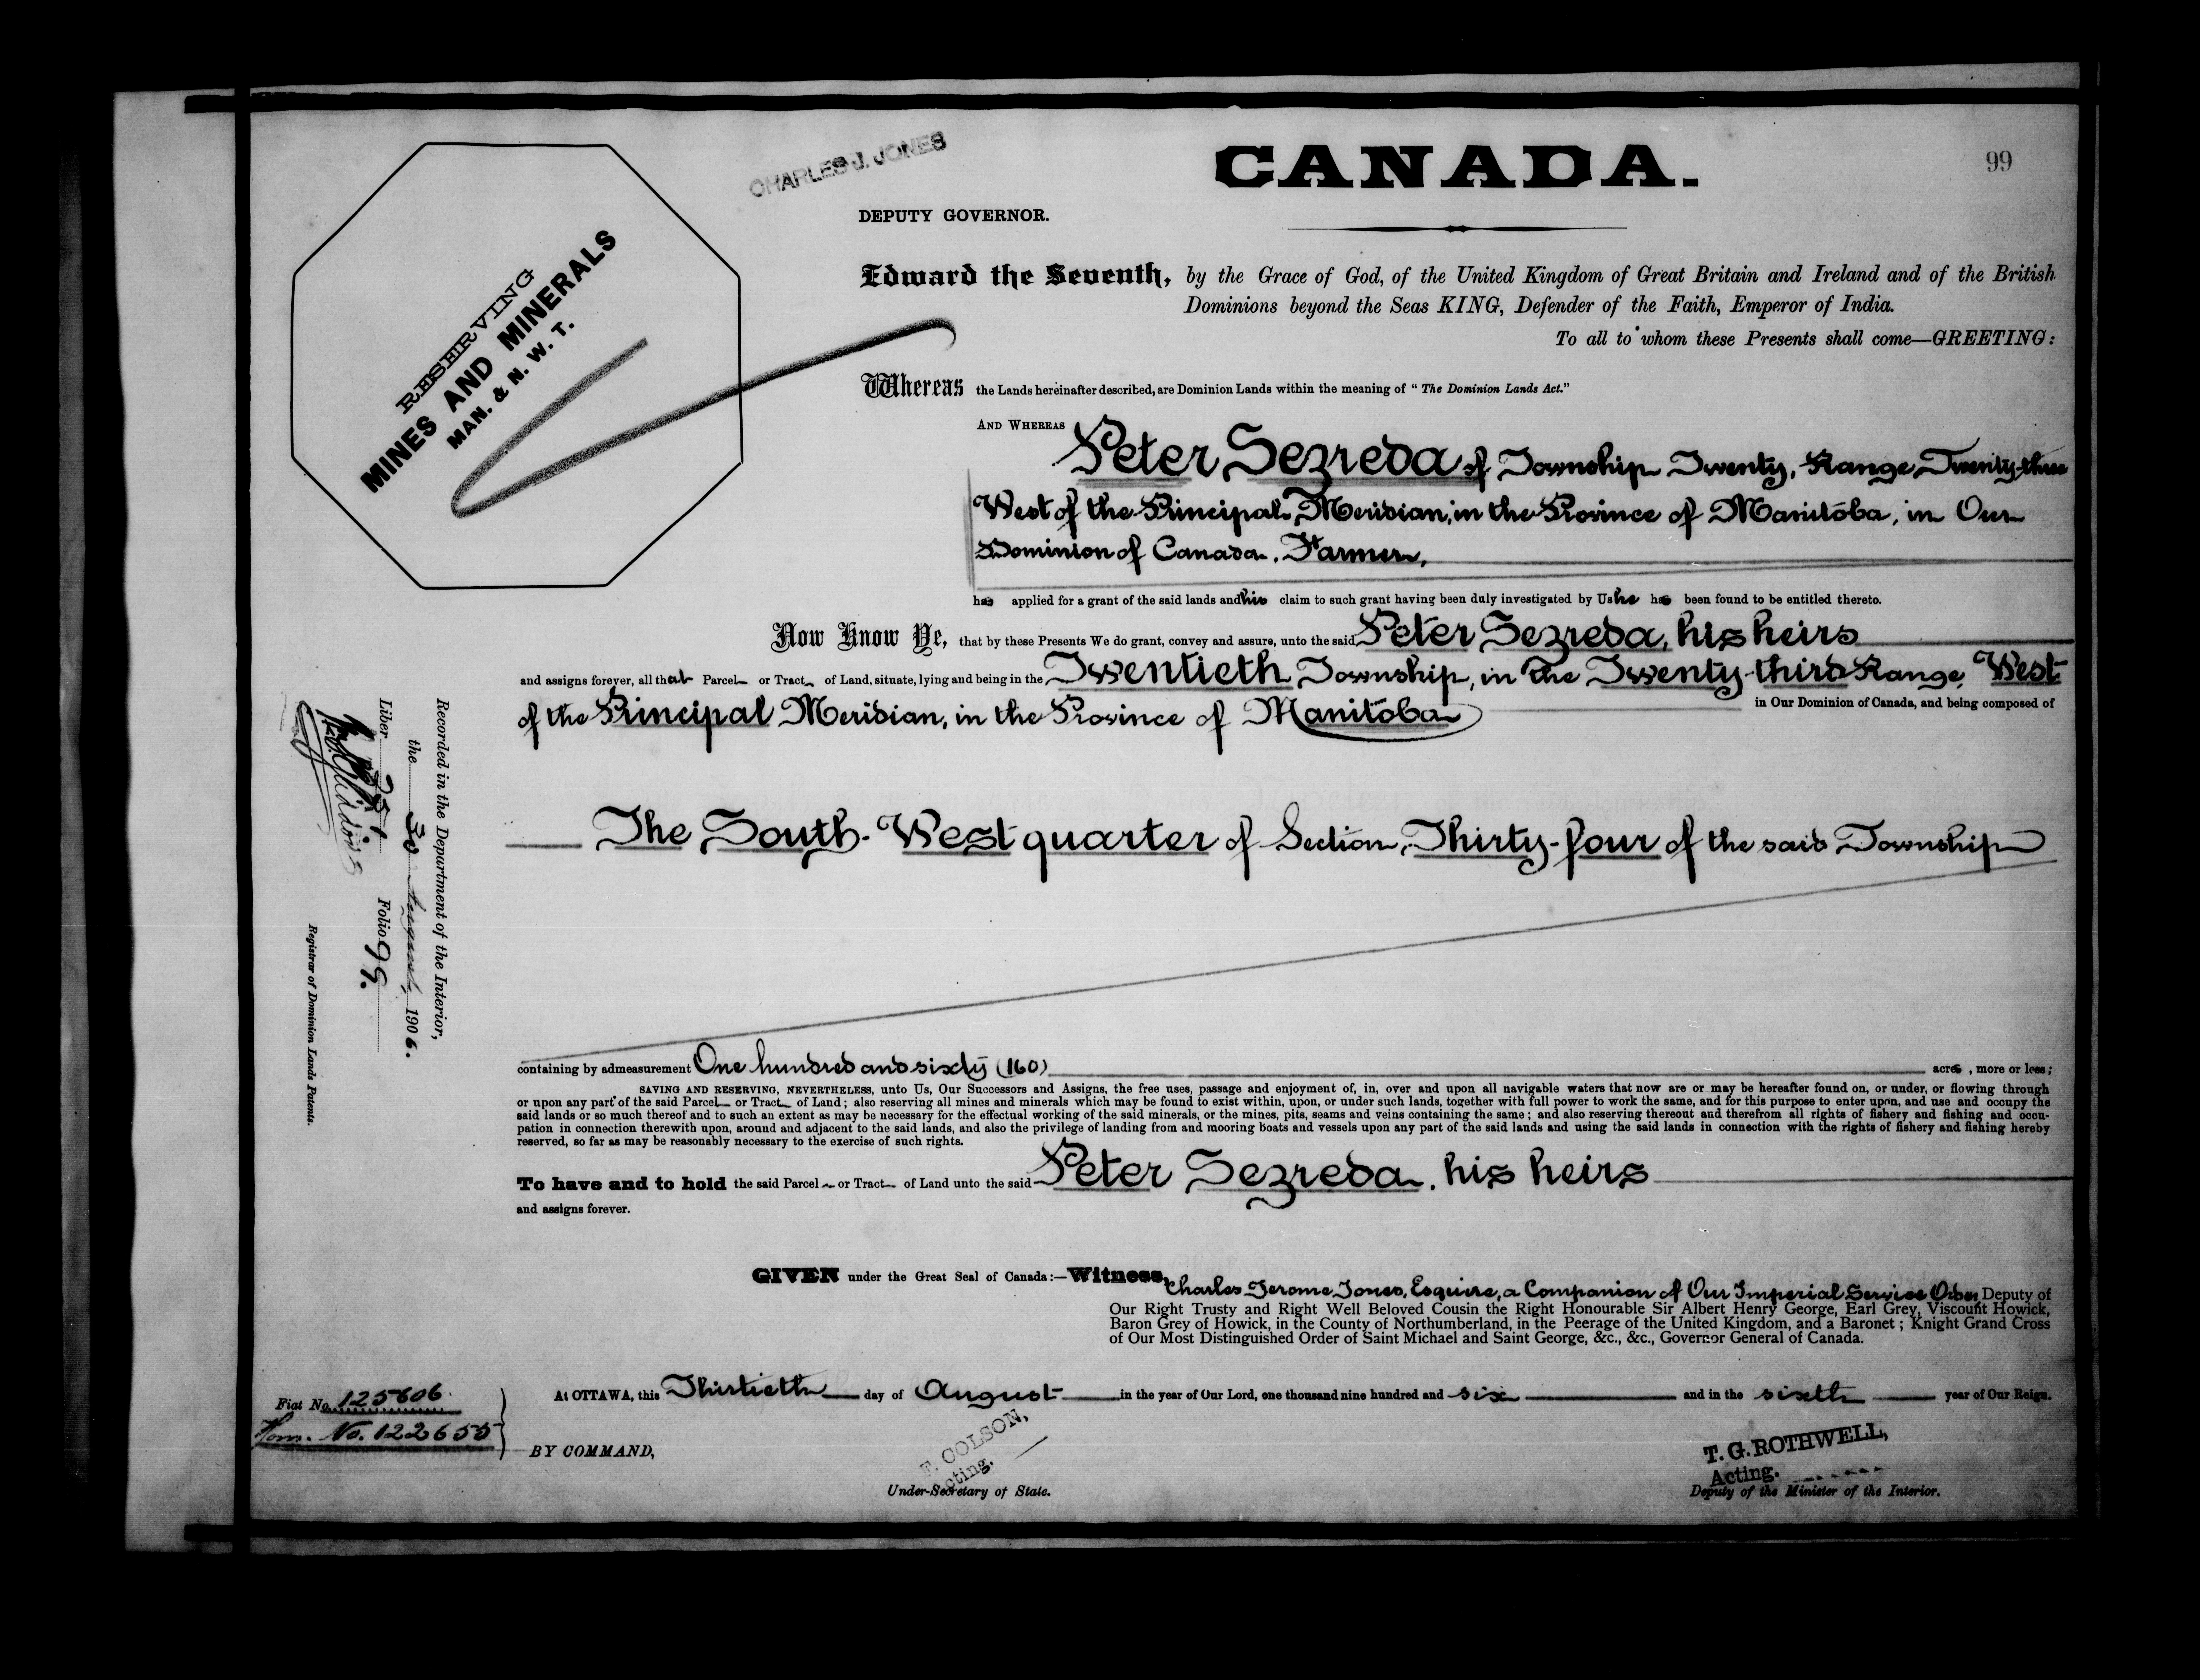 99
CHARLES J. JONES
DEPUTY GOVERNOR.
CANADA.
RESERVING
MINES AND MINERALS
MAN. & N. W. T.
Edward the Seventh, by the Grace of God, of the United Kingdom of Great Britain and Ireland and of the British
Dominions beyond the Seas KING, Defender of the Faith, Emperor of India.
To all to whom these Presents shall come—GREETING:
Whereas the Lands hereinafter described, are Dominion Lands within the meaning of "The Dominion Lands Act."
AND WHEREAS
Peter Sezreda of Township Twenty, Range Twenty-three
West of the Principal Meridian, in the Province of Manitoba, in Our
Dominion of Canada, Farmer,
has applied for a grant of the said lands and his claim to such grant having been duly investigated by Us he has been found to be entitled thereto.
Now Know Ye, that by these Presents We do grant, convey and assure, unto the said Peter Sezreda, his heirs
and assigns forever, all that Parcel or Tract of Land, situate, lying and being in the Twentieth Township, in the Twenty-third Range, West
of the Principal Meridian, in the Province of Manitoba in Our Dominion of Canada, and being composed of
The South-West quarter of Section Thirty-four of the said Township
containing by admeasurement One hundred and sixty (160) acres, more or less;
SAVING AND RESERVING, NEVERTHELESS, unto Us, Our Successors and Assigns, the free uses, passage and enjoyment of, in, over and upon all navigable waters that now are or may be hereafter found on, or under, or flowing through
or upon any part of the said Parcel or Tract of Land; also reserving all mines and minerals which may be found to exist within, upon, or under such lands, together with full power to work the same, and for this purpose to enter upon, and use and occupy the
said lands or so much thereof and to such an extent as may be necessary for the effectual working of the said minerals, or the mines, pits, seams and veins containing the same; and also reserving thereout and therefrom all rights of fishery and fishing and occu-
pation in connection therewith upon, around and adjacent to the said lands, and also the privilege of landing from and mooring boats and vessels upon any part of the said lands and using the said lands in connection with the rights of fishery and fishing hereby
reserved, so far as may be reasonably necessary to the exercise of such rights.
To have and to hold the said Parcel or Tract of Land unto the said Peter Sezreda, his heirs
and assigns forever.
GIVEN under the Great Seal of Canada:—Witness, Charles Jerome Jones, Esquire, a Companion of Our Imperial Service Order, Deputy of
Our Right Trusty and Right Well Beloved Cousin the Right Honourable Sir Albert Henry George, Earl Grey, Viscount Howick,
Baron Grey of Howick, in the County of Northumberland, in the Peerage of the United Kingdom, and a Baronet; Knight Grand Cross
of Our Most Distinguished Order of Saint Michael and Saint George, &c., &c., Governor General of Canada.
At OTTAWA, this Thirtieth day of August in the year of Our Lord, one thousand nine hundred and six and in the sixth year of Our Reign.
BY COMMAND,
F. COLSON,
Acting.
Under-Secretary of State.
T. G. ROTHWELL,
Acting.
Deputy of the Minister of the Interior.
Fiat No. 125606
Hom. No. 122655
Recorded in the Department of the Interior,
the 30 August 1906.
Liber 251 Folio 99.
Registrar of Dominion Lands Patents.